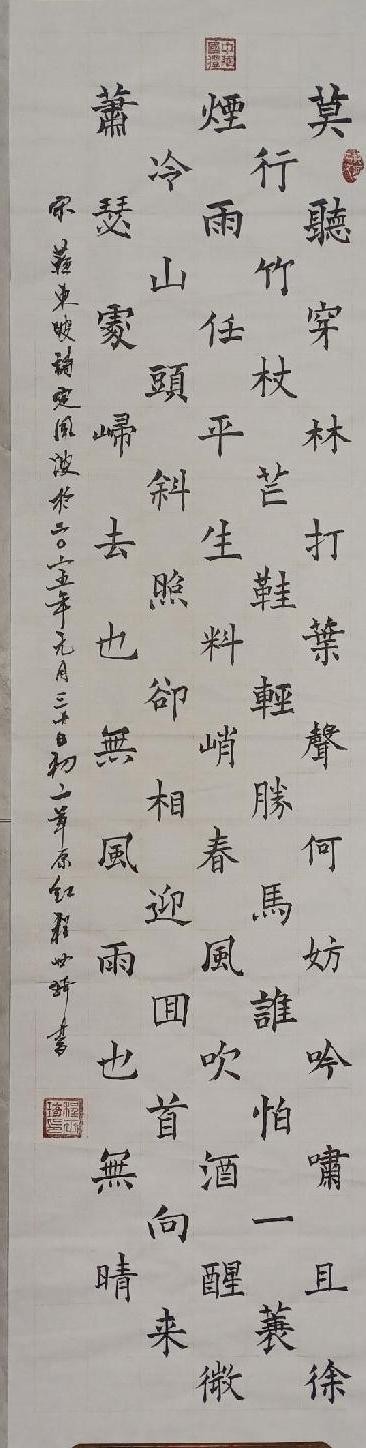 莫聽穿林打葉聲何妨吟嘯且徐
行竹杖芒鞋輕勝馬誰怕一蓑
煙雨任平生料峭春風吹酒醒微
冷山頭斜照卻相迎囬首向来
蕭瑟處歸去也無風雨也無晴
宋蘇東坡詞定風波於二〇二五年元月三十日初二草原紅程世琦書